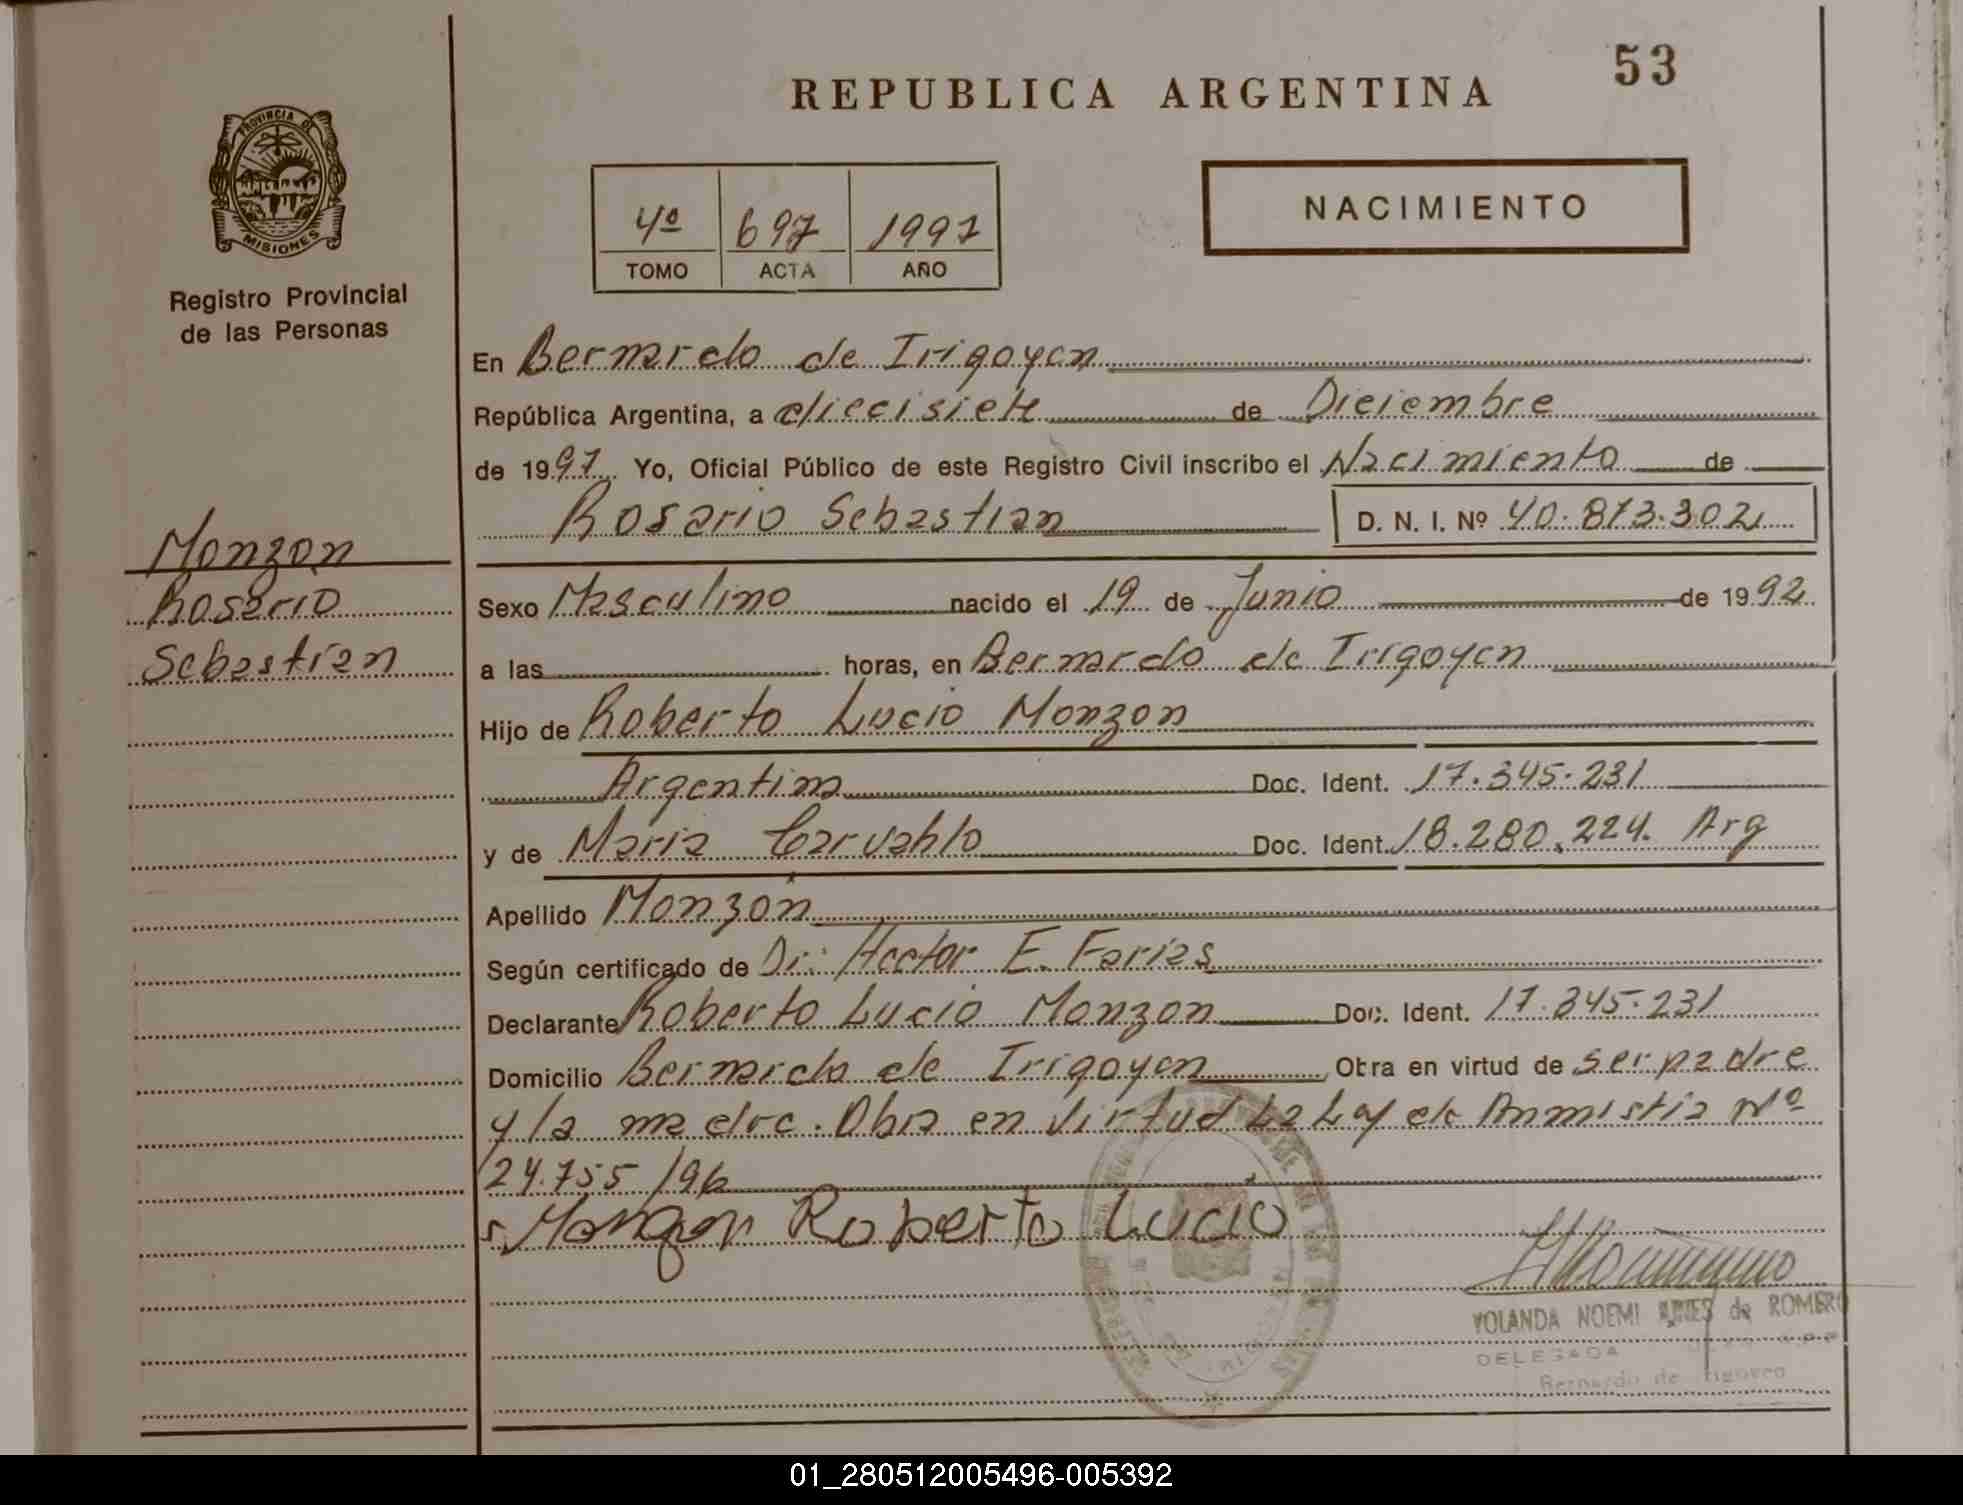 53
REPUBLICA ARGENTINA
PROVINCIA DE
MISIONES
Registro Provincial
de las Personas
NACIMIENTO
4º 697 1997
TOMO ACTA AÑO
En Bernardo de Irigoyen
República Argentina, a diecisiete de Diciembre
de 1997 Yo, Oficial Público de este Registro Civil inscribo el Nacimiento de
Rosario Sebastian D. N. I. Nº 40.873.302
Monzon
Rosario
Sebastian
Sexo Masculino nacido el 19 de Junio de 1992
a las horas, en Bernardo de Irigoyen
Hijo de Roberto Lucio Monzon
Argentina Doc. Ident. 17.345.231
y de Maria Carvahlo Doc. Ident. 18.280.224. Arg
Apellido Monzón
Según certificado de Dr: Hector E. Farias
Declarante Roberto Lucio Monzon Doc. Ident. 17.345.231
Domicilio Bernardo de Irigoyen Obra en virtud de ser padre
y la madre. Obra en virtud La Ley de Anmistia Nº
24.755/96
Monzon Roberto Lucio
YOLANDA NOEMI de ROMERO
DELEGADA
Bernardo de Irigoyen
01_280512005496-005392